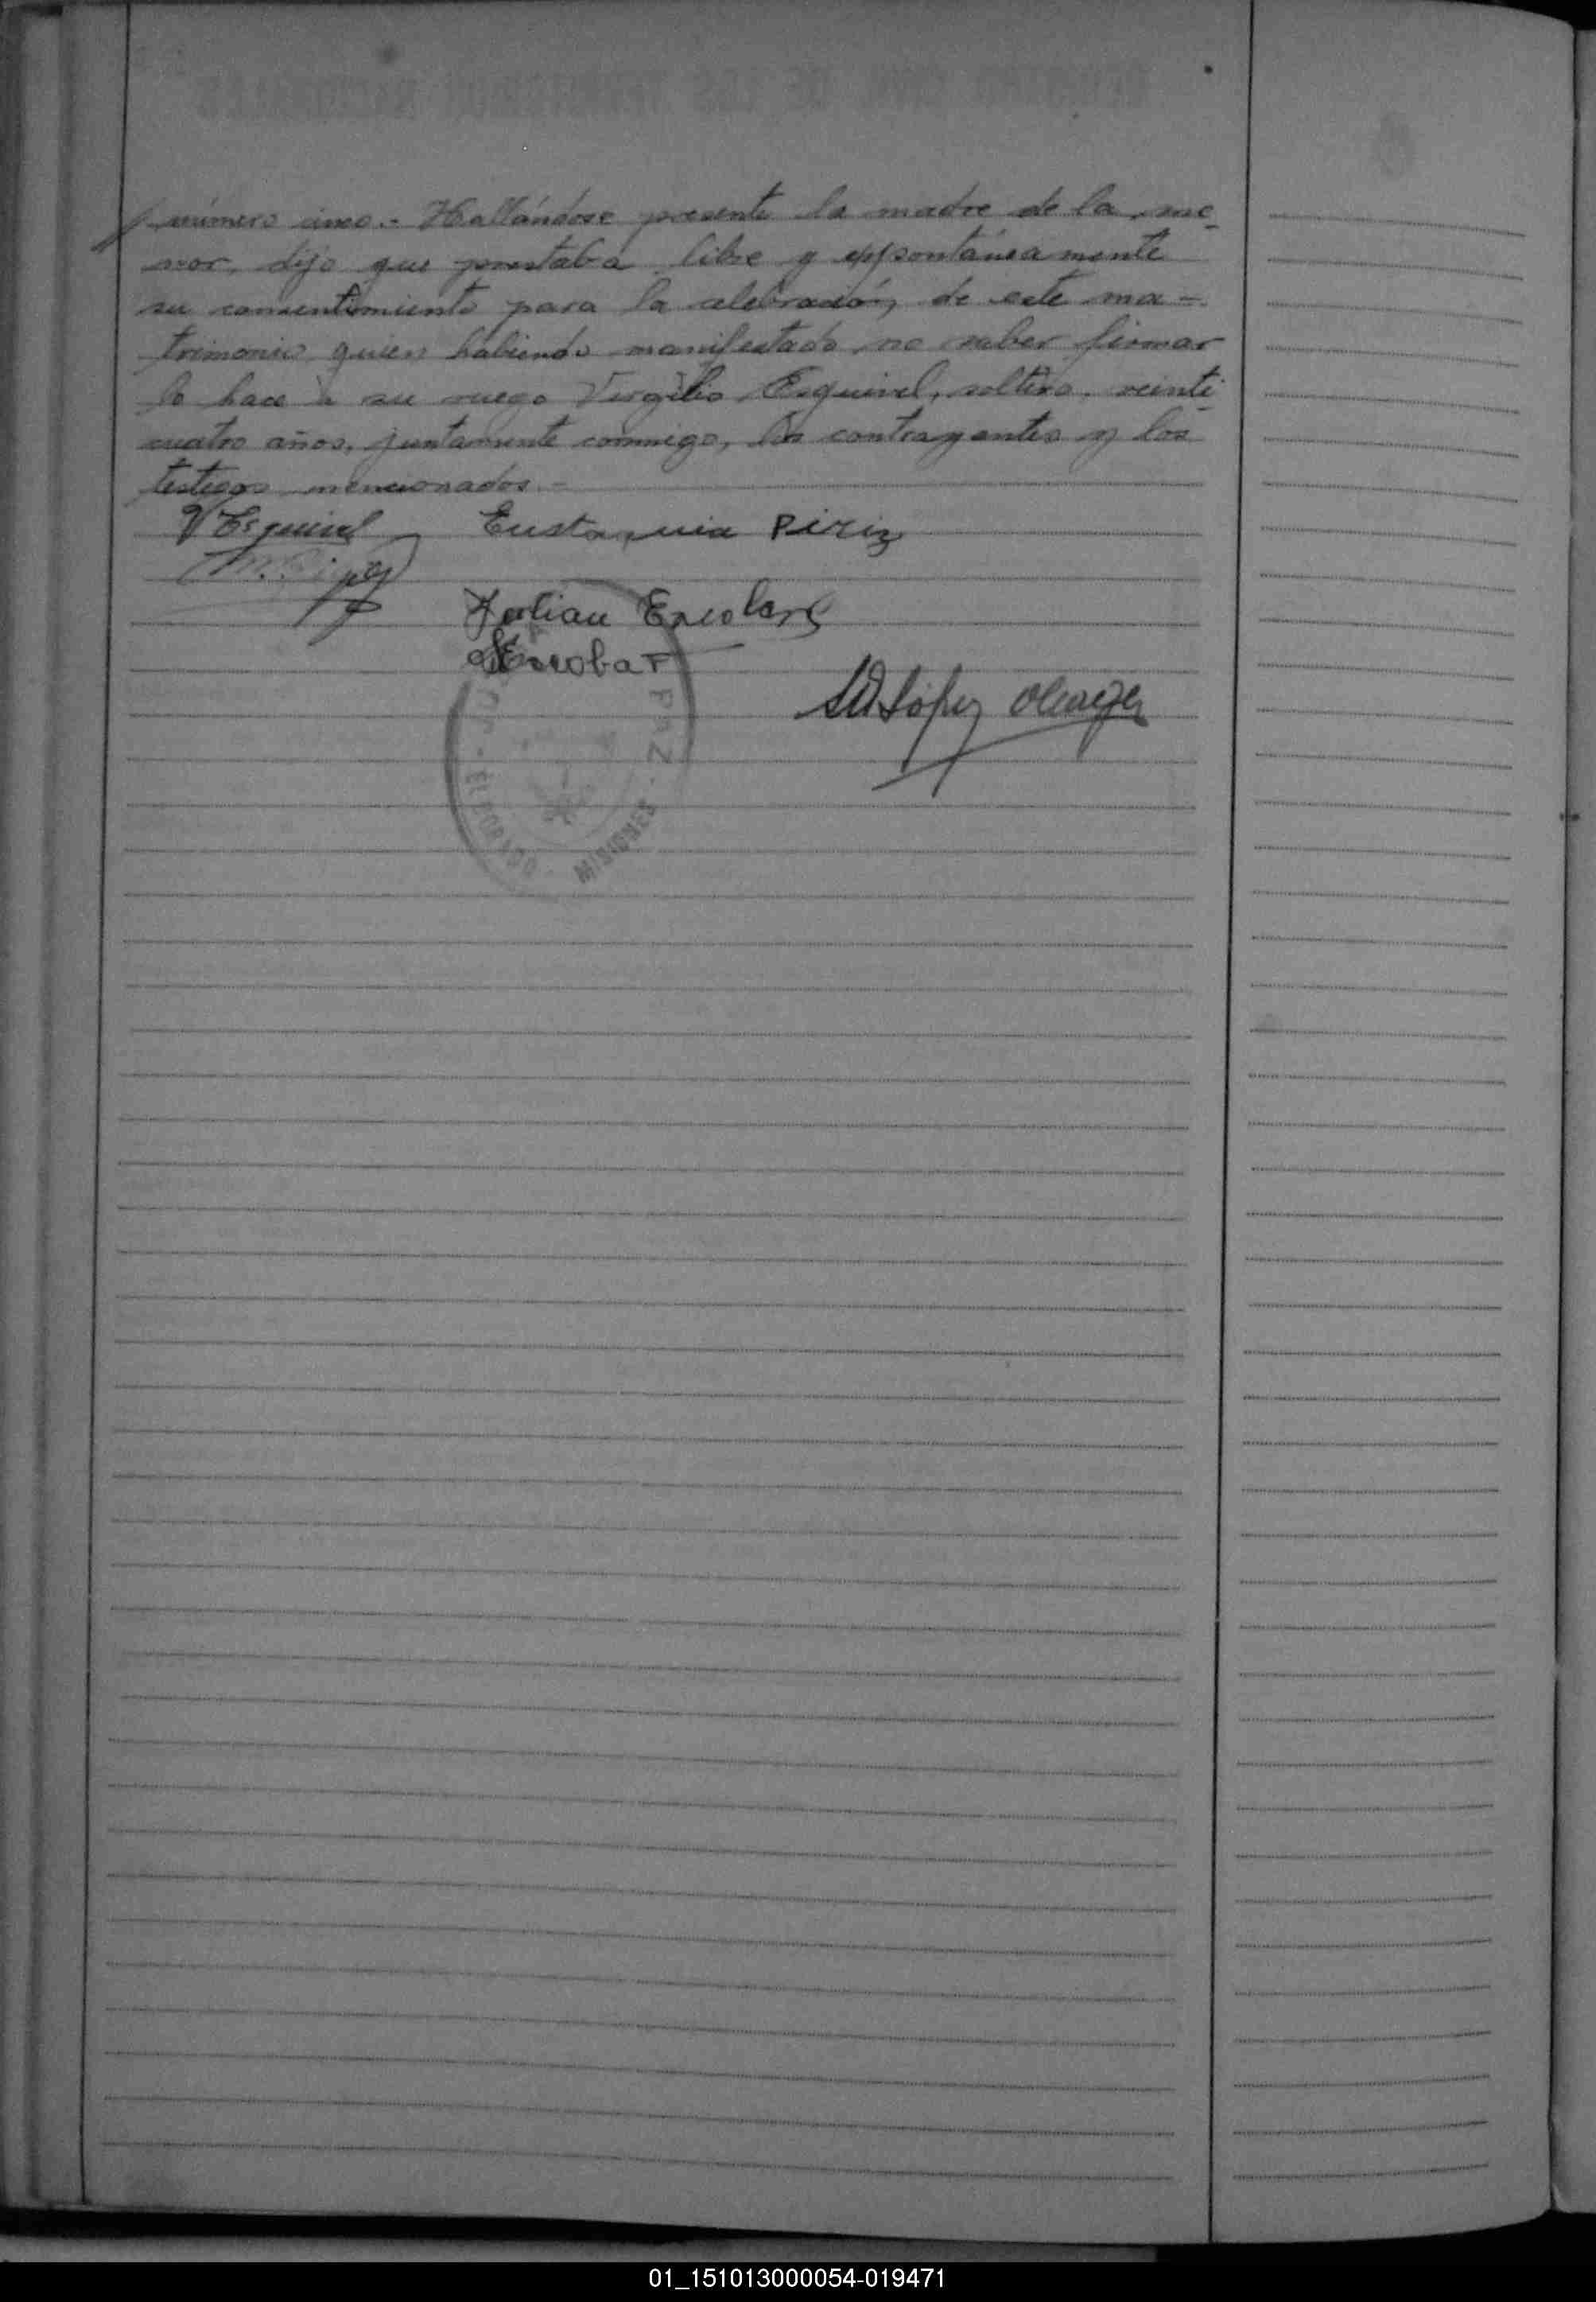 número cinco.- Hallándose presente la madre de la me-
nor, dijo que prestaba libre y espontánea mente
su consentimiento para la celebración de este ma-
trimonio quien habiendo manifestado no saber firmar
lo hace a su ruego Virgilio Esquivel, soltero, veinti-
cuatro años, juntamente conmigo, los contrayentes y los
testigos mencionados.-
V Esquivel Eustaquia Piriz
Julian Escobar
Escobar
López
PAZ
ELDORADO - MISIONES
01_151013000054-019471